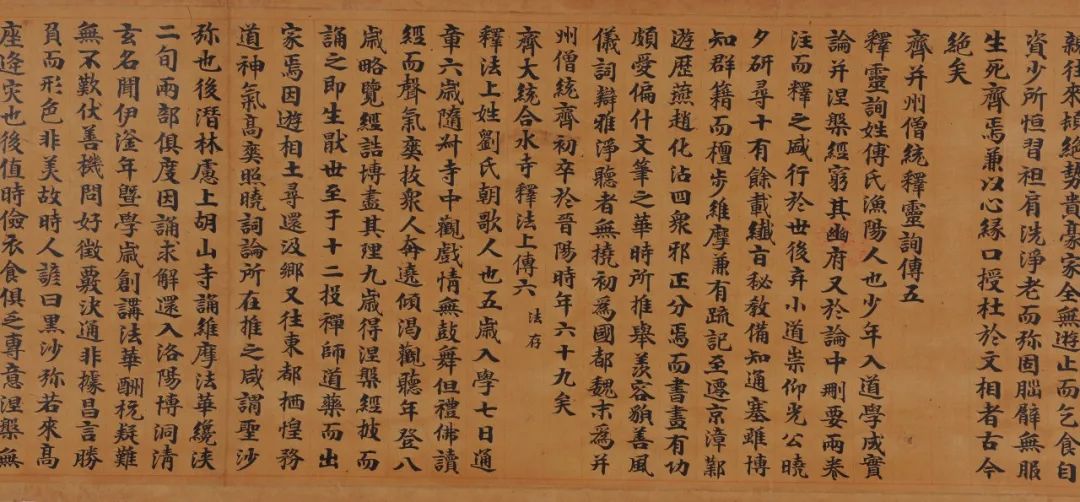 親往來頓絕勢貴豪家全無遊止而乞食自
資少所恒習袒肩洗淨老而弥固朏臂無服
生死齊焉兼以心緣口授杜於文相者古今
絕矣
齊并州僧統釋靈詢傳五
釋靈詢姓傅氏漁陽人也少年入道學成實
論并涅槃經窮其幽府又於論中刪要兩卷
注而釋之盛行於世後弃小道崇仰光公曉
夕研尋十有餘載纖旨秘教備知通塞雖博
知群籍而檀步維摩兼有疏記至遷京漳鄴
遊歷燕趙化沾四衆邪正分焉而書畫有功
頗愛偏什文筆之華時所推舉美容貌善風
儀詞辯雅淨聽者無撓初為國都魏末為并
州僧統齊初卒於晉陽時年六十九矣
齊大統合水寺釋法上傳六 法存
釋法上姓劉氏朝歌人也五歲入學七日通
章六歲隨叔寺中觀戲情無鼓舞但禮佛讀
經而聲氣爽拔衆人奔遶傾渴觀聽年登八
歲略覽經誥博盡其理九歲得涅槃經披而
誦之即生猒世至于十二投禪師道藥而出
家焉因遊相土尋還汲鄉又往東都栖惶務
道神氣高爽照曉詞論所在推之咸謂聖沙
弥也後潛林慮上胡山寺誦維摩法華纔浹
二旬兩部俱度因誦求解還入洛陽博洞清
玄名聞伊滏年暨學歲創講法華酬抗疑難
無不歎伏善機問好徵覈決通非據昌言勝
負而形色非美故時人諺曰黑沙弥若來高
座逢災也後值時儉衣食俱乏專意涅槃無